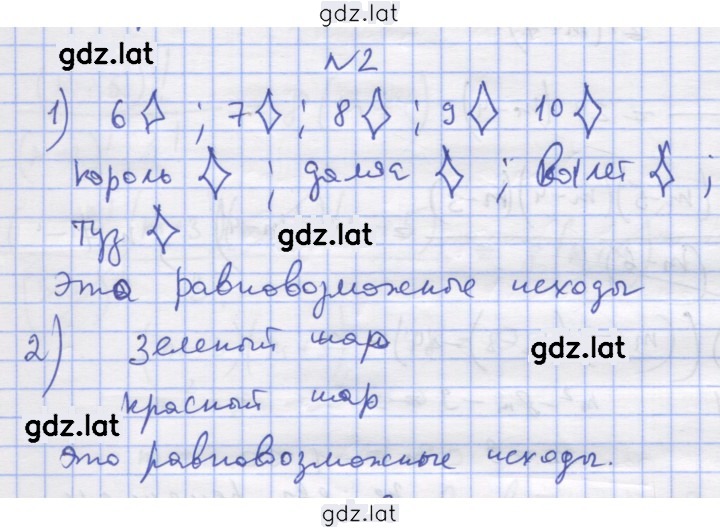 gdz.lat
gdz.lat
№2
1) 6 ♢ ; 7 ♢ ; 8 ♢ ; 9 ♢ 10 ♢
король ♢ ; дама ♢ ; валет ♢ ;
туз ♢
gdz.lat
Это равновозможные исходы
2) зеленый шар
gdz.lat
красный шар
gdz.lat
Это равновозможные исходы.
gdz.lat